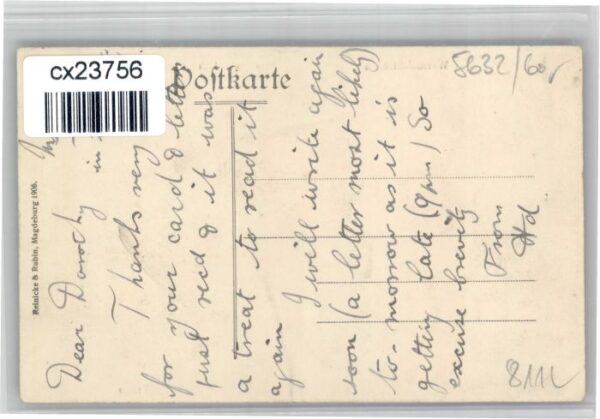 cx23756
Postkarte
5632/60
Reinicke & Rubin, Magdeburg 1906.
Dear Dorothy
in
Thanks very
for your card & letter
just recd & it was
a treat to read it
again
I will write again
soon (a letter most likely)
to-morrow as it is
getting late (9pm) So
excuse brevity
From